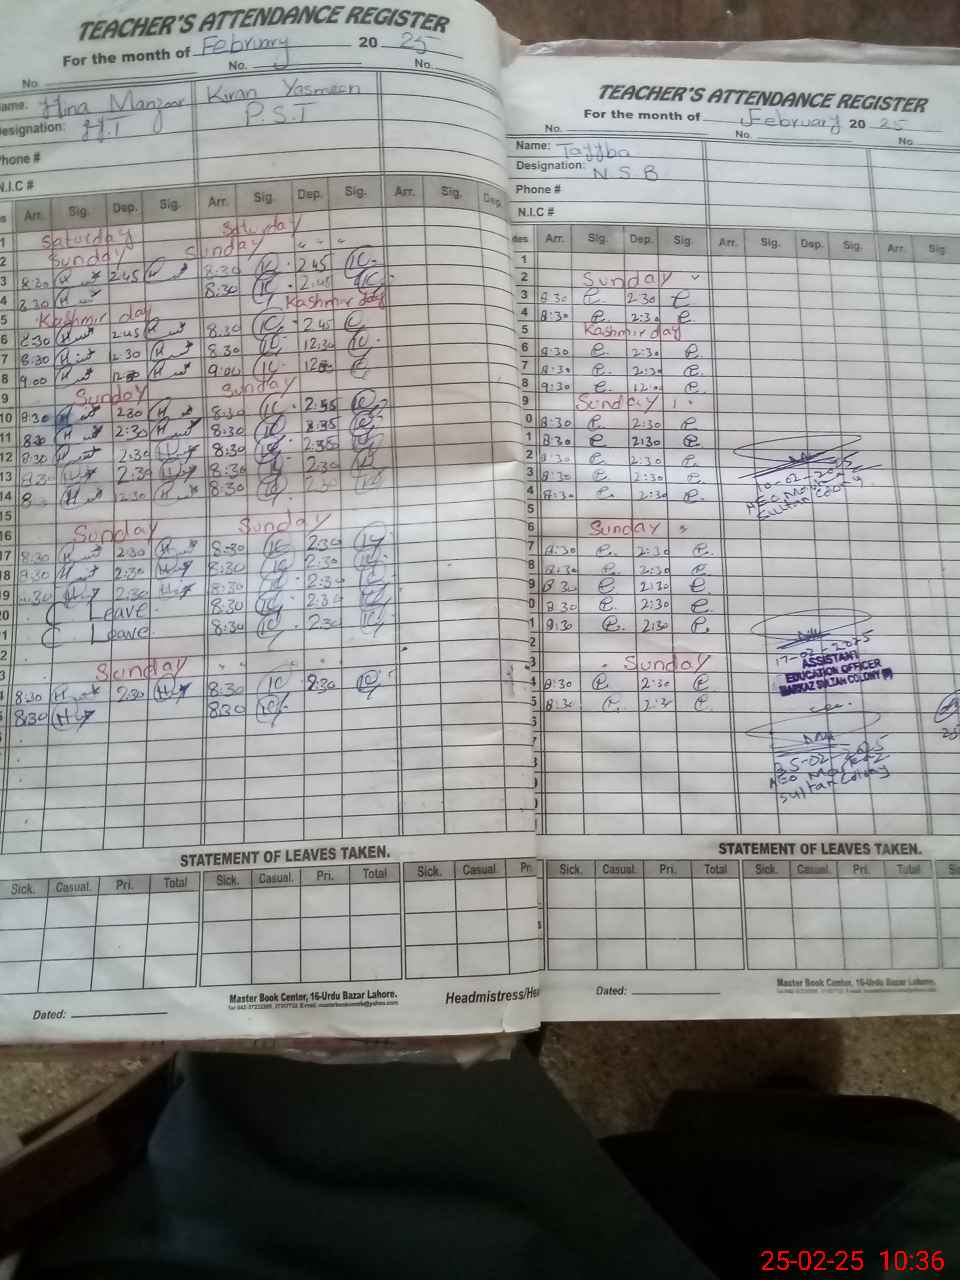 TEACHER'S ATTENDANCE REGISTER
For the month of February 20 25
No. No. No.
Name: Hina Manzoor Kiran Yasmeen
Designation: H.T P.S.T
Phone #
N.I.C #
Arr. Sig. Dep. Sig. Arr. Sig. Dep. Sig. Arr. Sig. Dep.
1 Saturday Saturday
2 Sunday Sunday
3 8:30 2:45 8:30 2:45
4 8:30 8:30 2:45
5 Kashmir day Kashmir day
6 8:30 2:45 8:30 2:45
7 8:30 12:30 8:30 12:30
8 9:00 9:00
9 Sunday Sunday
10 8:30 2:30 8:30 2:45
11 8:30 2:30 8:30
12 8:30 2:30 8:30
13 8:30 2:30 8:30 2:30
14 8: 12:30 8:30
15
16 Sunday Sunday
17 8:30 2:30 8:30 2:30
18 8:30 2:30 8:30 2:30
19 8:30 2:30 8:30 2:30
20 C Leave 8:30 2:30
1 C Leave 8:30 2:30
2
3 Sunday
4 8:30 2:30 8:30 2:30
5 8:30 8:30
STATEMENT OF LEAVES TAKEN.
Sick. Casual. Pri. Total Sick. Casual. Pri. Total Sick. Casual. Pri.
Master Book Center, 16-Urdu Bazar Lahore.
Dated: Headmistress/He
TEACHER'S ATTENDANCE REGISTER
For the month of February 20 25
No. No. No.
Name: Tayyba
Designation: N.S.B
Phone #
N.I.C #
Arr. Sig. Dep. Sig. Arr. Sig. Dep. Sig. Arr. Sig.
1
2 Sunday
3 8:30 2:30
4 8:30 2:30
5 Kashmir day
6 8:30 2:30
7 8:30 2:30
8 9:30 12:00
9 Sunday
0 8:30 2:30
1 8:30 2:30
2 8:30 2:30
3 8:30 2:30
4 8:30 2:30
5
6 Sunday
7 8:30 2:30
8 8:30 2:30
9 8:30 2:30
0 8:30 2:30
1 8:30 2:30
2
3 Sunday
4 8:30 2:30
5 8:30 2:30
10-02-2025
AEO Markaz
Sultan Colony
17-02-2025
ASSISTANT
EDUCATION OFFICER
MARKAZ SULTAN COLONY
25-02-2025
AEO Markaz
Sultan Colony
STATEMENT OF LEAVES TAKEN.
Sick. Casual. Pri. Total Sick. Casual. Pri. Total
Dated:
Master Book Center, 16-Urdu Bazar Lahore.
25-02-25 10:36